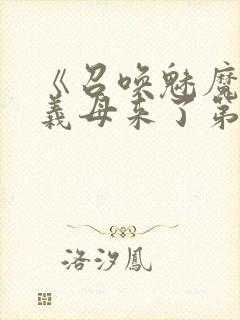 《召唤魅魔
義母来了第
洛汐鳳